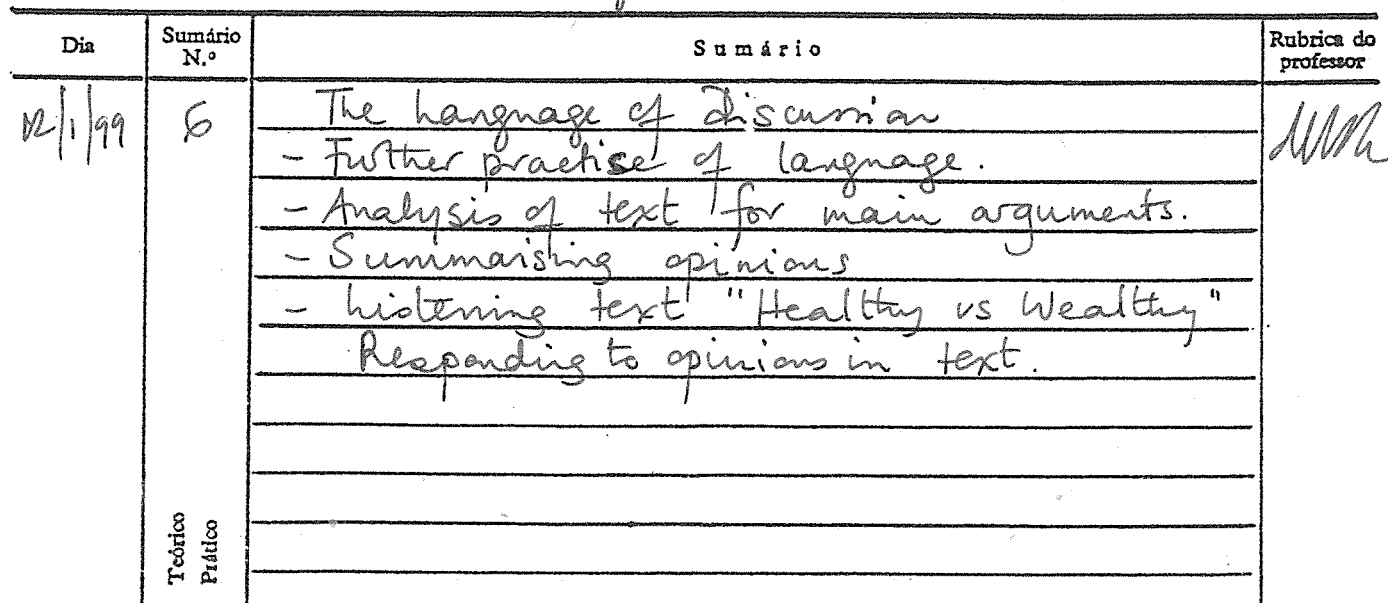 Dia Sumário N.º Sumário Rubrica do professor
12/1/99 6 The Language of Discussion
- Further practise of language.
- Analysis of text for main arguments.
- Summaising opinions
- Listening text "Healthy vs Wealthy"
Responding to opinions in text.
Teórico
Prático